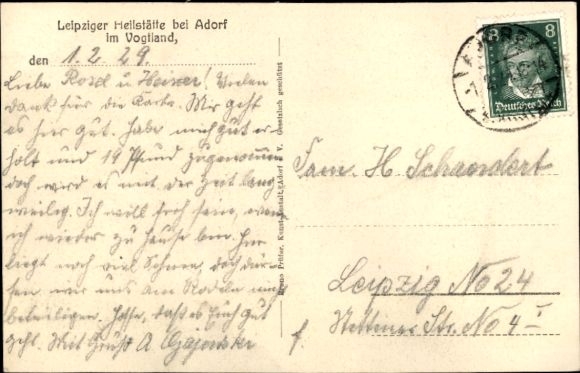 Leipziger Heilstätte bei Adorf
im Vogtland,
den 1. 2. 29.
Liebe Rosel u. Heiner! Vielen
Dank für die Karte. Mir geht
es hier gut. Habe mich gut er-
holt und 19 Pfund zugenommen
doch wird es mit der Zeit lang
weilig. Ich will froh sein, wenn
ich wieder zu Hause bin. Hier
liegt noch viel Schnee, doch dür-
fen wir uns am Rodeln nicht
beteiligen. Hoffe, daß es Euch gut
geht. Mit Gruß A.
Bruno Prüfer, Kunstanstalt, Adorf i. V. Gesetzlich geschützt
8 8
Deutsches Reich
ADORF
Fam. H. Schaondart
Leipzig No 24
Str. No 4 I